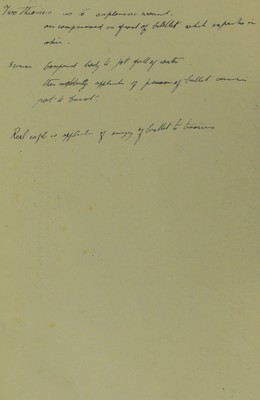 Two Theories as to explosive wound.
air compressed in front of bullet which expands in
skin.
compared body to pot full of water
the application of pressure of bullet causes
pot to burst.
Real is application of energy of bullet to tissues